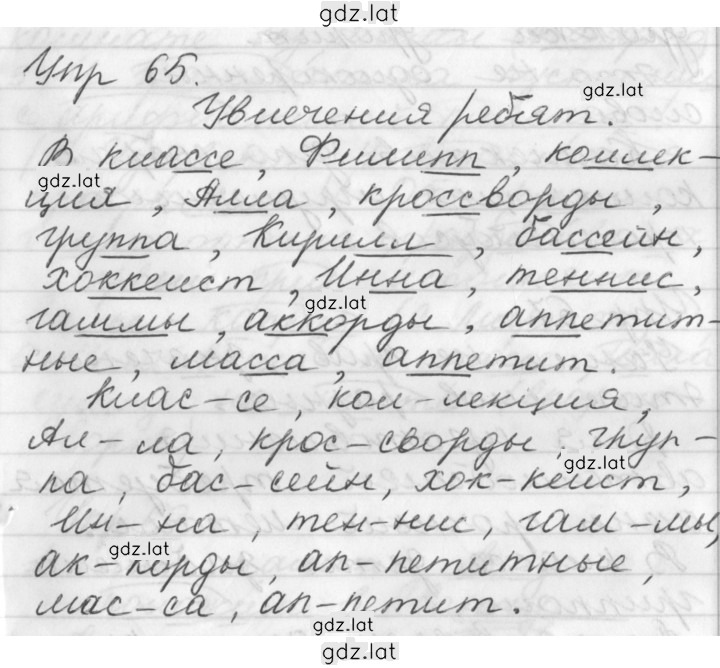 gdz.lat
Упр 65.
gdz.lat
Увлечения ребят.
В классе, Филипп, коллек-
gdz.lat
ция, Алла, кроссворды,
группа, Кирилл, бассейн,
хоккеист, Инна, теннис,
gdz.lat
гаммы, аккорды, аппетит-
ные, масса, аппетит.
Клас-се, кол-лекция,
Ал-ла, крос-сворды, груп-
gdz.lat
па, бас-сейн, хок-кеист,
Ин-на, тен-нис, гам-мы,
gdz.lat
ак-корды, ап-петитные,
мас-са, ап-петит.
gdz.lat
gdz.lat